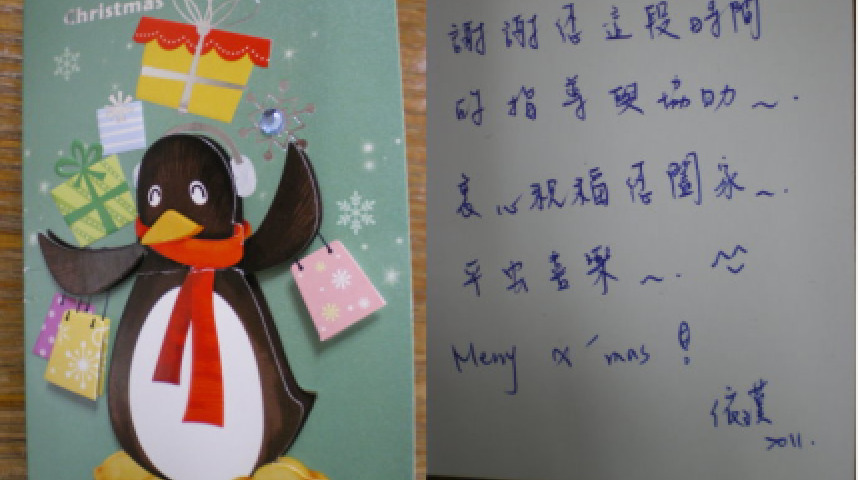 Christmas
謝謝您這段時間
的指導與協助～.
衷心祝福您闔家～.
平安喜樂～. ^^
Merry X'mas !
2011.